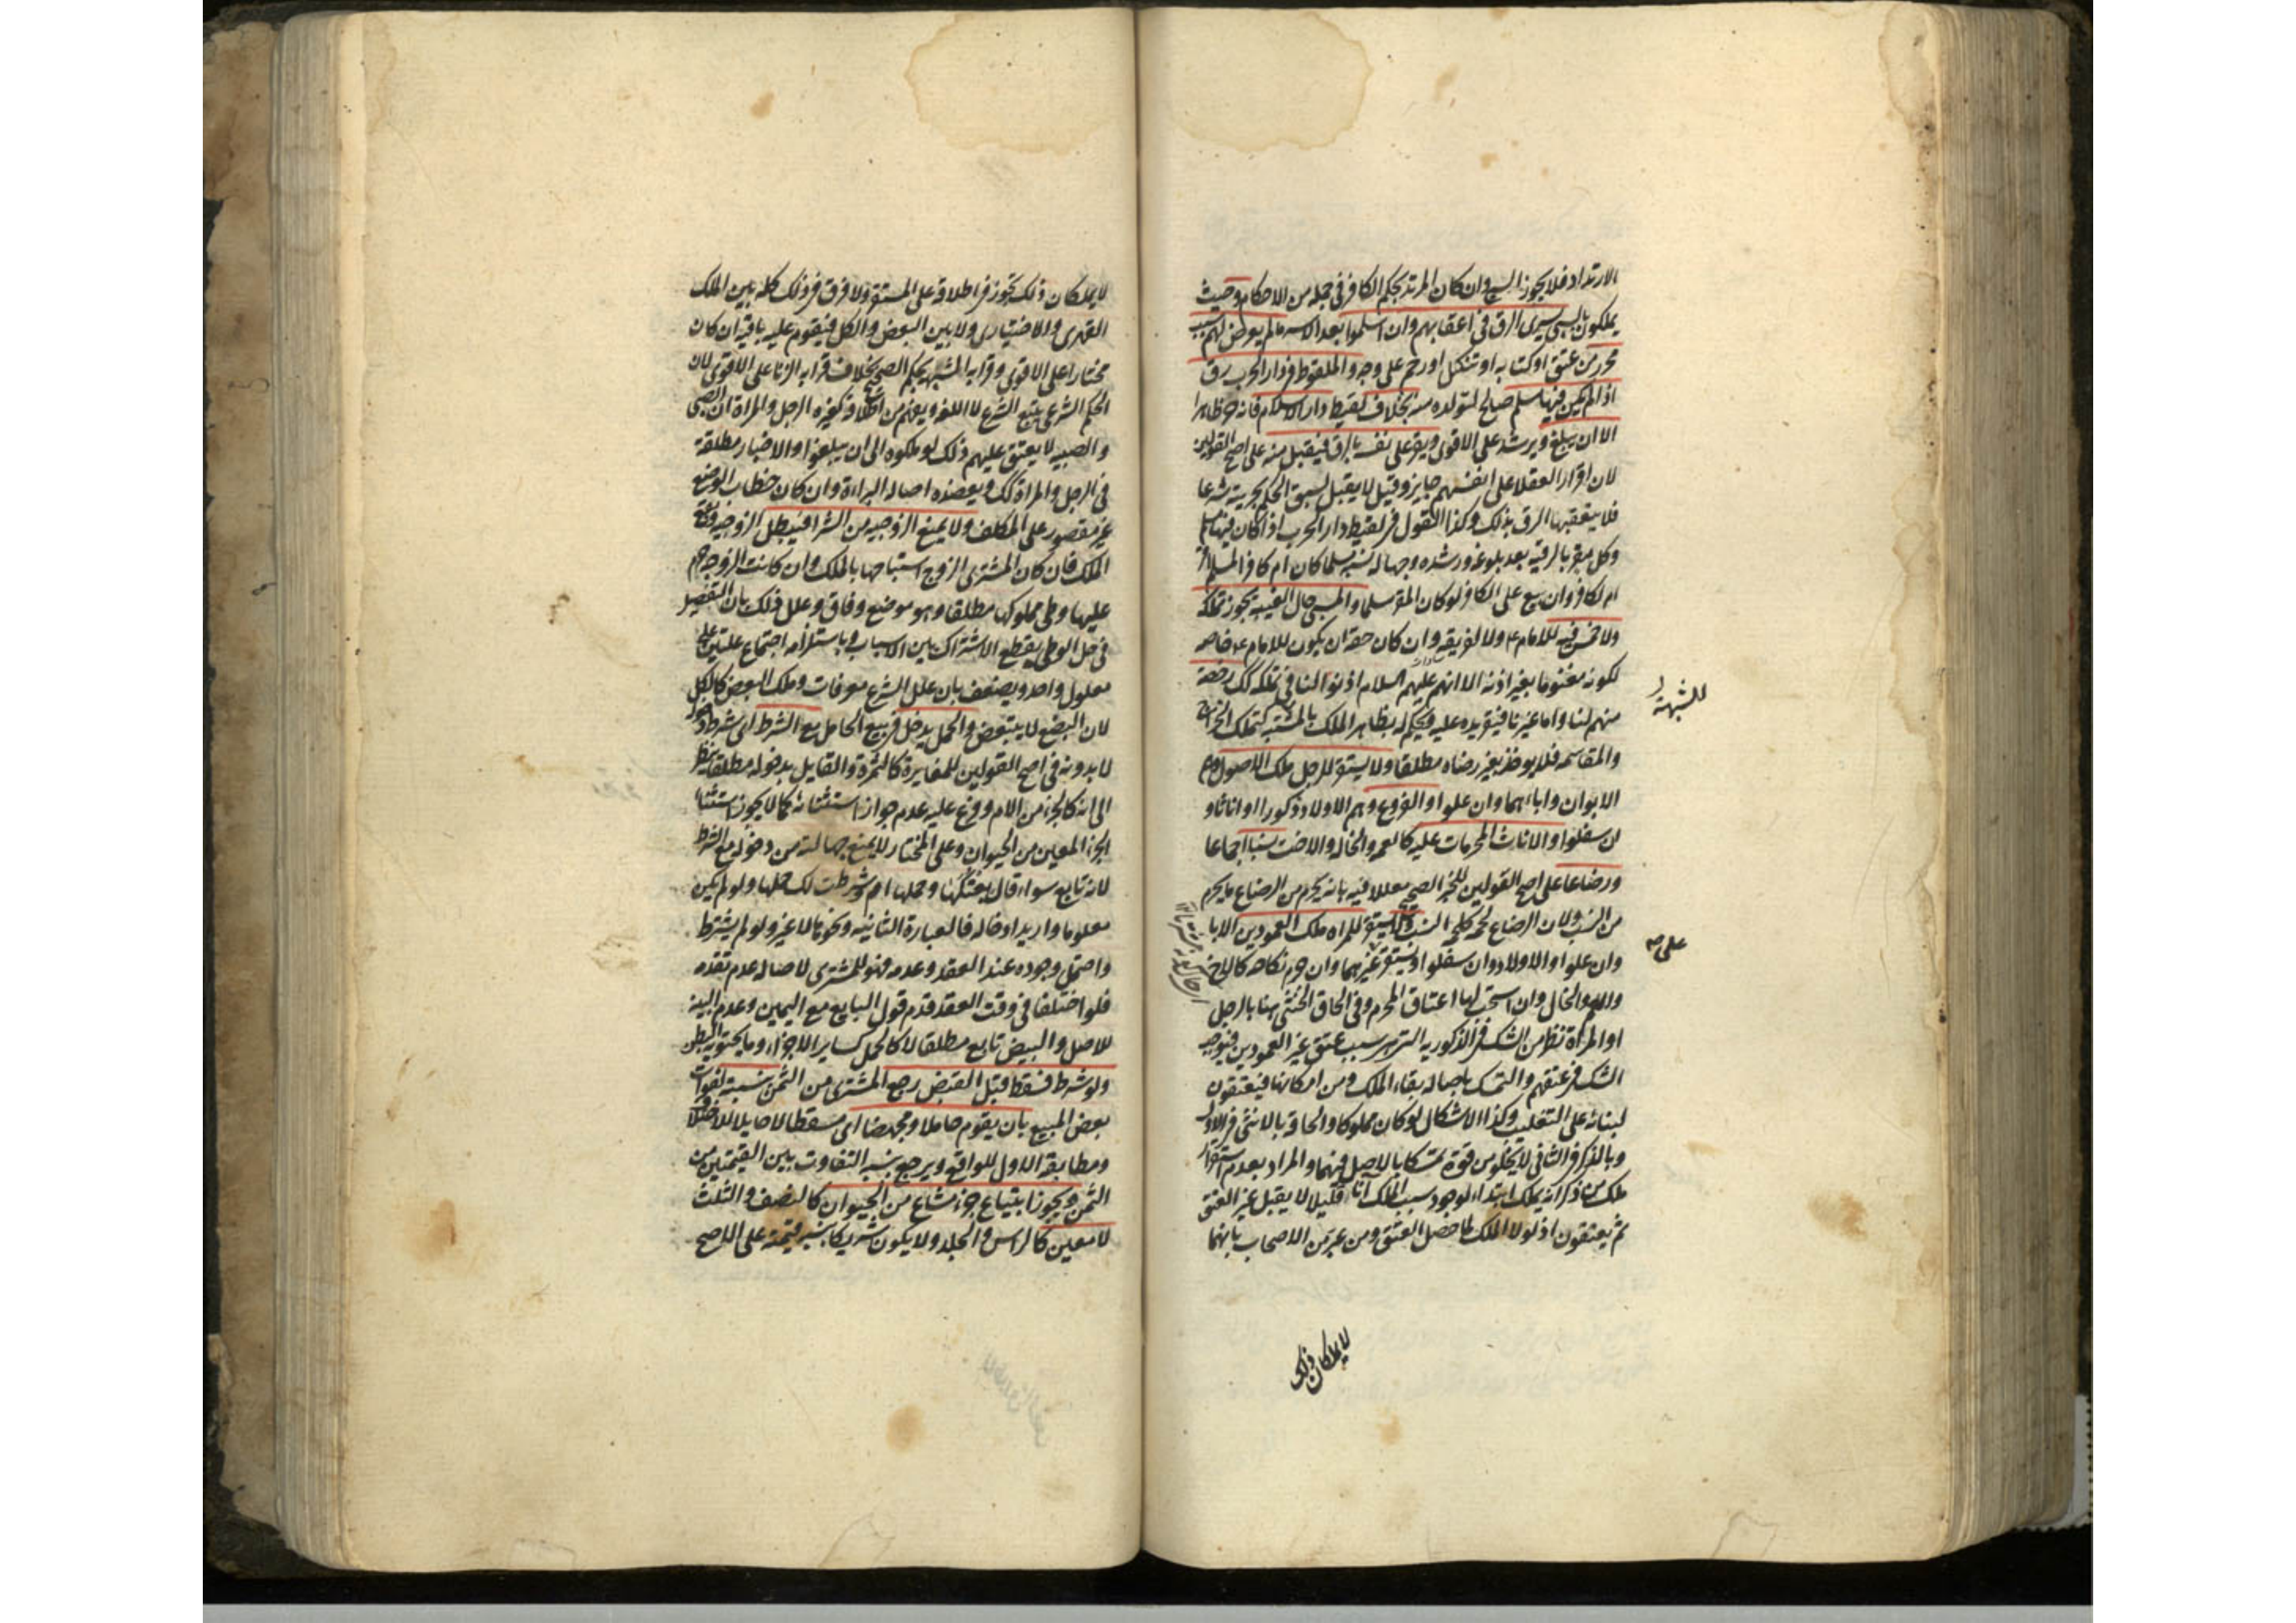 الارتداد فلا يجوز السبي وان كان المرتد بحكم الكافر في جملة من الاحكام وحيث
يملكون بالسبي يسرى الرق في اعقابهم وان اسلموا بعد الاسر ما لم يعرض لهم سبب
محرر من عتق او كتابه او تنكيل او رحم على وجه والملقوط في دار الحرب رق
اذا لم يكن فيها مسلم صالح لتولده منه بخلاف لقيط دار الاسلام فانه حر ظاهرا
الا ان يبلغ ويرشد على الاقوى ويقر على نفسه بالرق فيقبل منه على اصح القولين
لان اقرار العقلا على انفسهم جايز وقيل لا يقبل لسبق الحكم بحريته شرعا
فلا يتعقبها الرق بذلك وكذا القول في لقيط دار الحرب اذا كان فيها مسلم
وكل مقر بالرقيه بعد بلوغه ورشده وجهاله نسبه مسلما كان ام كافرا لمسلم اقر
ام لكافر وان بيع على الكافر لو كان المقر مسلما والمسبى حال الغيبه يجوز تملكه
ولا خمس فيه للامام ع ولا لفريقه وان كان حقه ان يكون للامام ع خاصه
لكونه مغنوما بغير اذنه الا انهم عليهم السلام اذنوا لنا في تملكه كك رخصة
منهم لنا واما غيرنا فتقر يده عليه ويحكم له بظاهر الملك للشبهة كتملك الخراج
والمقاسمه فلا يوخذ بغير رضاه مطلقا ولا يستقر للرجل ملك الاصول وهم
الابوان واباءهما وان علوا والفروع وهم الاولاد ذكورا او اناثا و
ان سفلوا والاناث المحرمات عليه كالعمه والخاله والاخت نسبا اجماعا
ورضاعا على اصح القولين للخبر الصحيح معللا فيه بانه يحرم من الرضاع ما يحرم
من النسب ولان الرضاع لحمة كلحمة النسب ولا يستقر للمراه ملك العمودين الابا
وان علوا والاولاد وان سفلوا ويستقر على غيرهما وان حرم نكاحه كالاخ
والعم والخال وان استحب لها اعتاق المحرم وفي الحاق الخنثى هنا بالرجل
او المراة نظر من الشك في الذكوريه التي هي سبب عتق غير العمودين فيوجب
الشك في عتقهم والتمسك باصاله بقاء الملك ومن امكانها فيعتقون
لبنائه على التغليب وكذا الاشكال لو كان مملوكا والحاقه بالانثى في الاول
وبالذكر في الثاني لا يخلو من قوة تمسكا بالاصل فيهما والمراد بعدم استقرار
ملك من ذكر انه يملك ابتداء لوجود سبب الملك آنا قليلا لا يقبل غير العتق
ثم يعتقون اذ لولا الملك لما حصل العتق ومن عبر من الاصحاب بانهما
للشبهة
على
لا يملكان ذلك
لا يملكان ذلك تجوز في اطلاقه على المستقر ولا فرق في ذلك كله بين الملك
القهرى والاختيارى ولا بين البعض والكل فيقوم عليه باقيه ان كان
مختارا على الاقوى وقرابه الشبهه بحكم الصحيح بخلاف قرابه الزنا على الاقوى لان
الحكم الشرعي يتبع الشرع لا اللغه ويفهم من اطلاقه كغيره الرجل والمراة ان الصبي
والصبيه لا يعتق عليهم ذلك لو ملكوه الى ان يبلغوا والاخبار مطلقة
في الرجل والمراة كك ويعضده اصاله البراءة وان كان خطاب الوضع
غير مقصور على المكلف ولا يمنع الزوجيه من الشرا فيبطل الزوجيه ويقع
الملك فان كان المشترى الزوج استباحها بالملك وان كانت الزوجه حرم
عليها وطى مملوكها مطلقا وهو موضع وفاق وعلل ذلك بان التفصيل
في حل الوطى يقطع الاشتراك بين الاسباب وباستلزامه اجتماع علتين على
معلول واحد ويضعف بان علل الشرع معرفات وملك البعض كالكل
لان البضع لا يتبعض والحمل يدخل في بيع الحامل مع الشرط اي شرط دخوله
لا بدونه في اصح القولين للمغايرة كالثمرة والقايل بدخوله مطلقا ينظر
الى انه كالجزء من الام وفرع عليه عدم جواز استثنائه كما لا يجوز استثناء
الجزء المعين من الحيوان وعلى المختار لا يمنع جهالته من دخوله مع الشرط
لانه تابع سواء قال بعتكها وحملها ام وشرطت لك حملها ولو لم يكن
معلوما واريد ادخاله فالعبارة الثانيه ونحوها لا غير ولو لم يشترط
واحتمل وجوده عند العقد وعدمه فهو للمشترى لاصاله عدم تقدمه
فلو اختلفا في وقت العقد قدم قول البايع مع اليمين وعدم البينه
للاصل والبيض تابع مطلقا لا كالحمل كساير الاجزاء وما يحتويه البطن
ولو شرط فسقط قبل القبض رجع المشترى من الثمن بنسبته لفوات
بعض المبيع بان يقوم حاملا ومجهضا اى مسقطا لا حايلا للاختلاف
ومطابقة الاول للواقع ويرجع بنسبه التفاوت بين القيمتين من
الثمن ويجوز ابتياع جزء مشاع من الحيوان كالنصف والثلث
لا معين كالراس والجلد ولا يكون شريكا بنسبه قيمته على الاصح